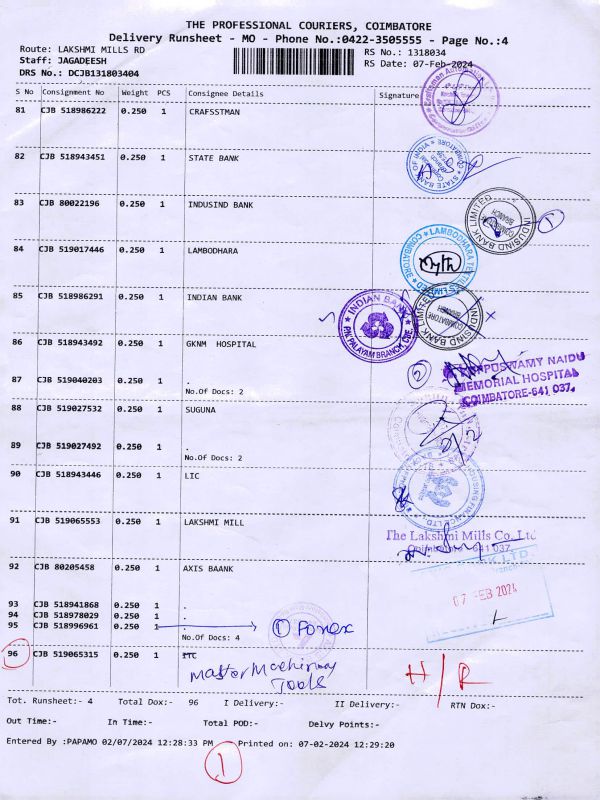 THE PROFESSIONAL COURIERS, COIMBATORE
Delivery Runsheet - MO - Phone No.:0422-3505555 - Page No.:4
Route: LAKSHMI MILLS RD
RS No.: 1318034
Staff: JAGADEESH
RS Date: 07-Feb-2024
DRS No.: DCJB131803404
S No Consignment No Weight PCS Consignee Details Signature
81 CJB 518986222 0.250 1 CRAFSSTMAN
82 CJB 518943451 0.250 1 STATE BANK
STATE BANK OF INDIA COIMBATORE
83 CJB 80022196 0.250 1 INDUSIND BANK
INDUSIND BANK LIMITED COIMBATORE BRANCH
1
84 CJB 519017446 0.250 1 LAMBODHARA
LAMBODHARA TEXTILES LIMITED COIMBATORE
85 CJB 518986291 0.250 1 INDIAN BANK
INDIAN BANK P.N. PALAYAM BRANCH, CBE.
INDUSIND BANK LIMITED COIMBATORE BRANCH
86 CJB 518943492 0.250 1 GKNM HOSPITAL
2
KUPPUSWAMY NAIDU
MEMORIAL HOSPITAL
COIMBATORE-641 037.
87 CJB 519040203 0.250 1 .
No.Of Docs: 2
88 CJB 519027532 0.250 1 SUGUNA
89 CJB 519027492 0.250 1 .
No.Of Docs: 2
90 CJB 518943446 0.250 1 LIC
91 CJB 519065553 0.250 1 LAKSHMI MILL
The Lakshmi Mills Co. Ltd
Coimbatore - 641 037
92 CJB 80205458 0.250 1 AXIS BAANK
07 FEB 2024
93 CJB 518941868 0.250 1 .
94 CJB 518978029 0.250 1 .
95 CJB 518996961 0.250 1 .
1 Forex
No.Of Docs: 4
96 CJB 519065315 0.250 1 ITC
Master Machinary
Tools
H/R
Tot. Runsheet:- 4 Total Dox:- 96 I Delivery:- II Delivery:- RTN Dox:-
Out Time:- In Time:- Total POD:- Delvy Points:-
Entered By :PAPAMO 02/07/2024 12:28:33 PM Printed on: 07-02-2024 12:29:20
1